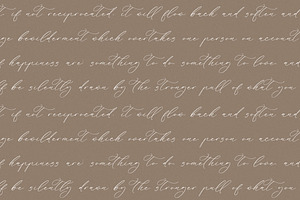 if not reciprocated it will flow back and soften and
bewilderment which overtakes one person on account
f happiness are something to do, something to love, and
lf be silently drawn by the stronger pull of what you
t if not reciprocated it will flow back and soften and
ge bewilderment which overtakes one person on account
f happiness are something to do, something to love, and
lf be silently drawn by the stronger pull of what you